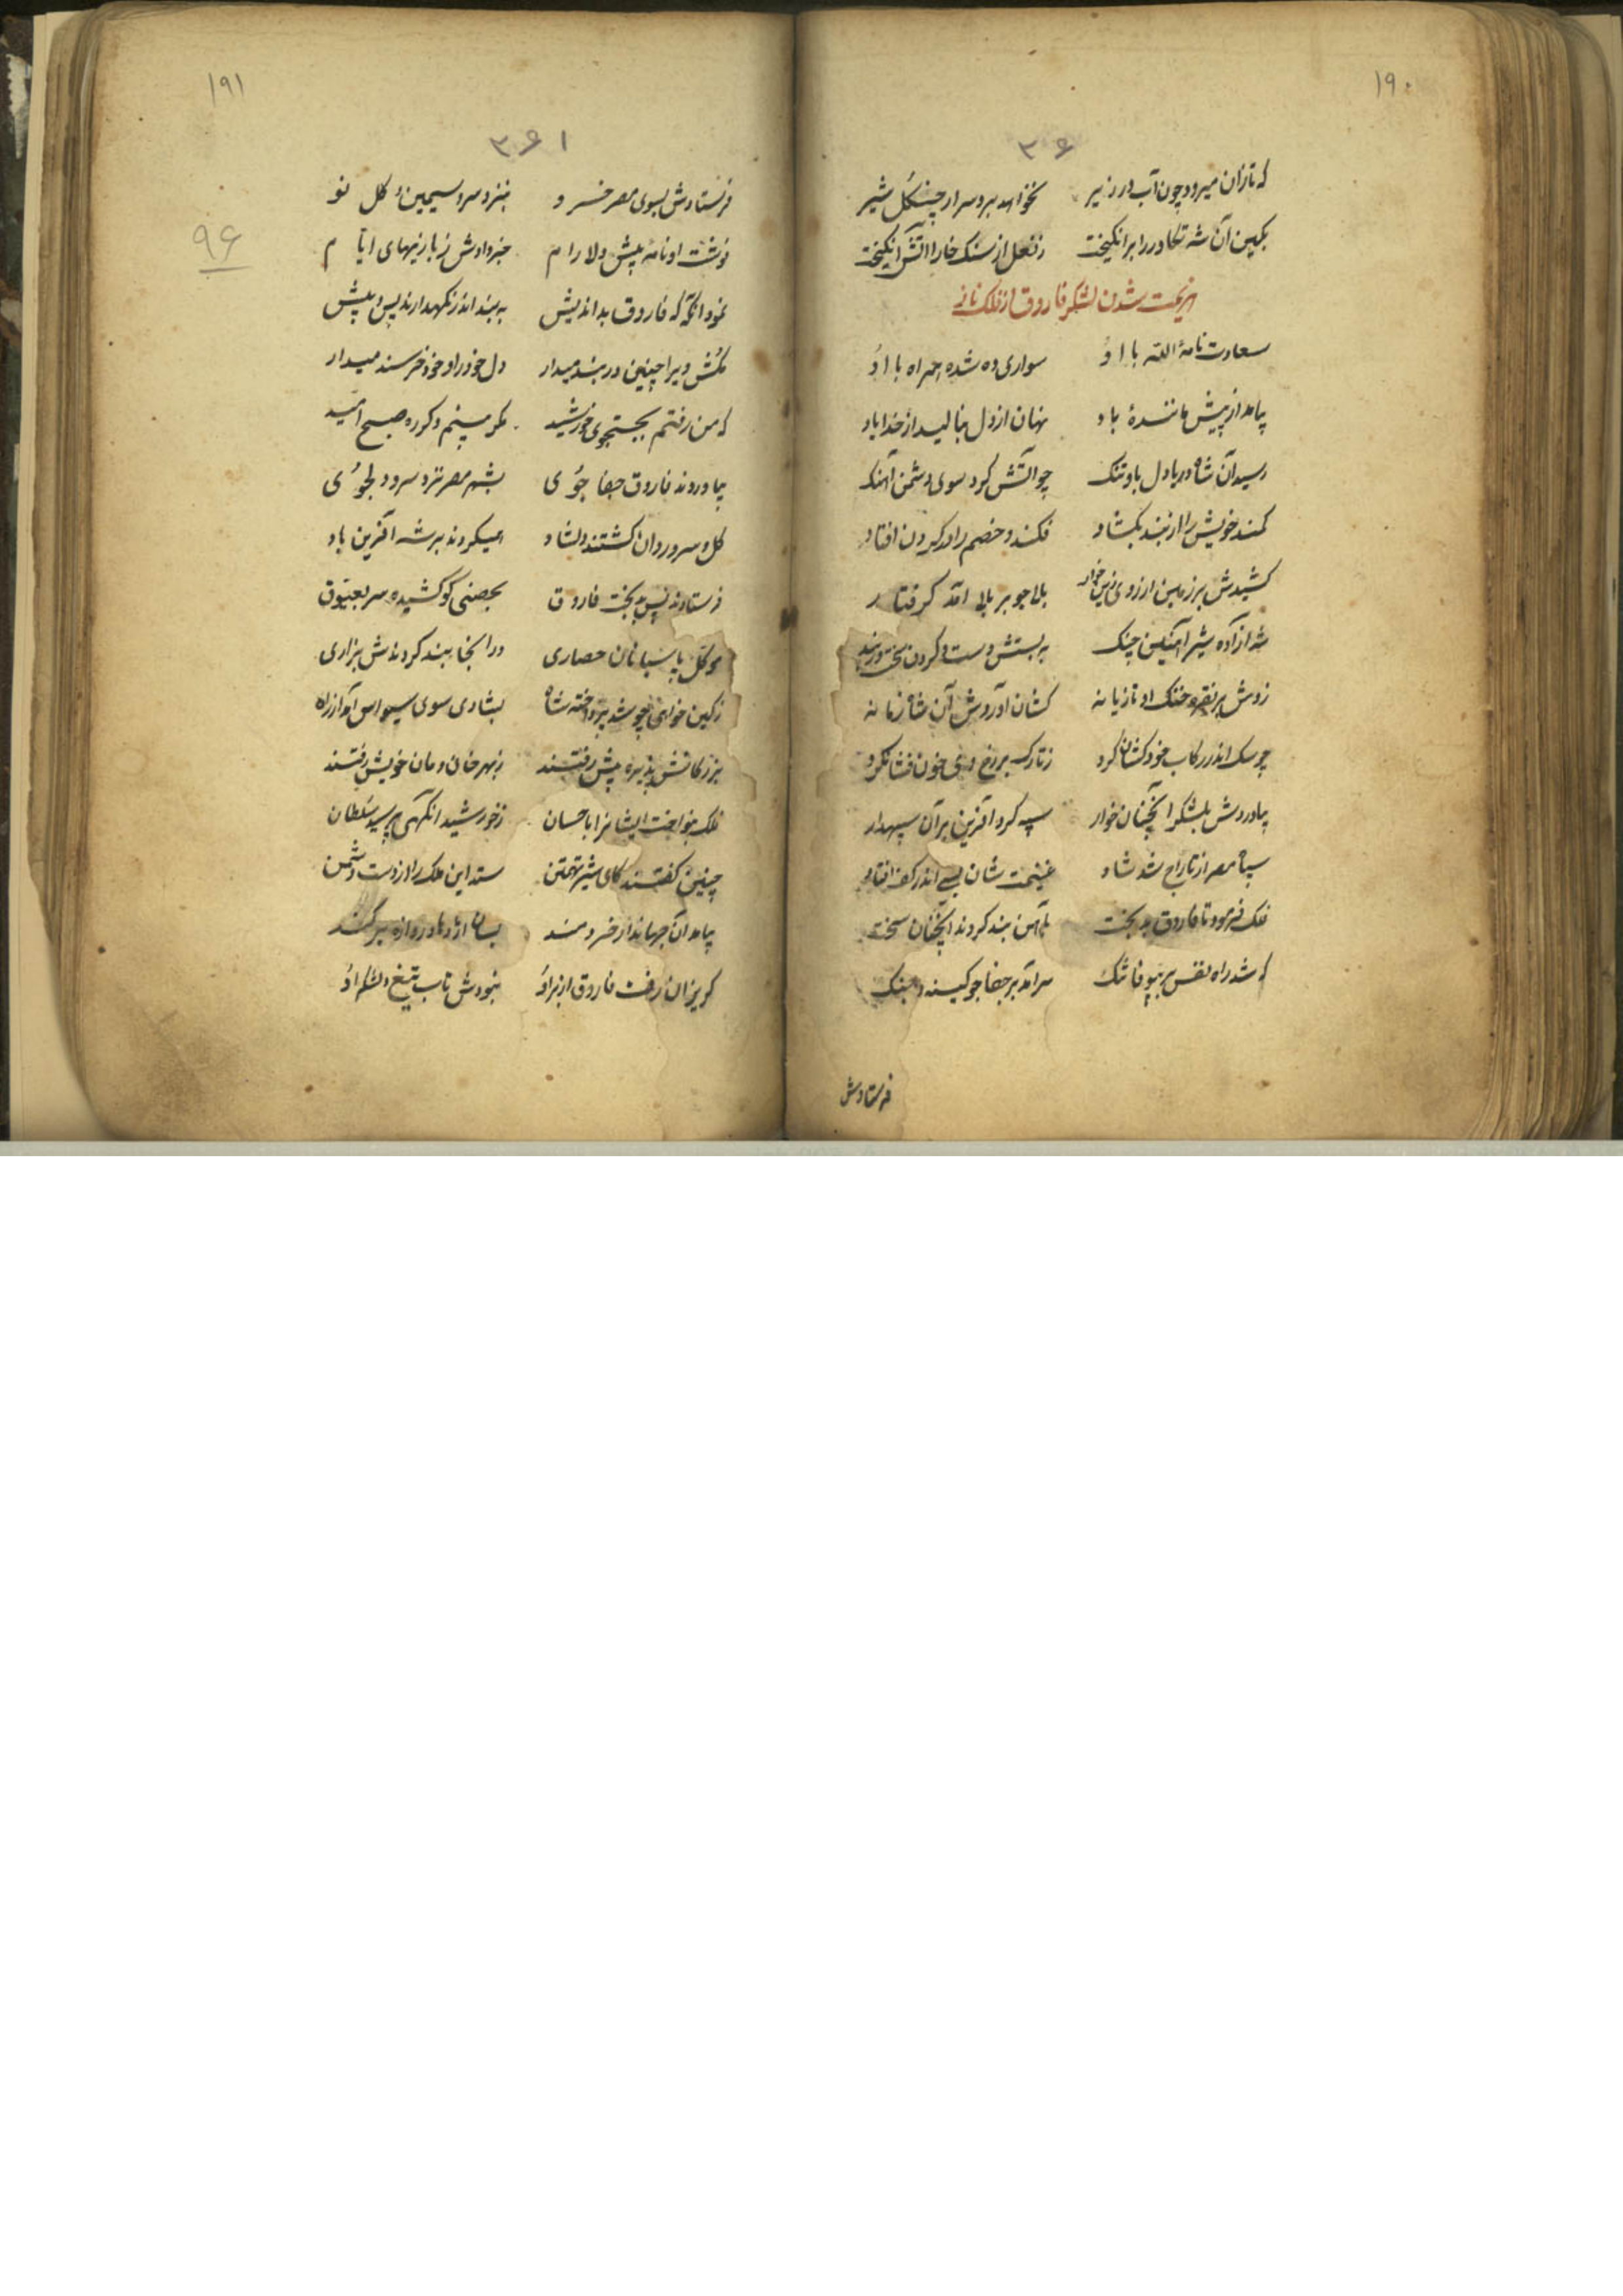 ۱۹۰
۳۶
که تازان میرود چون آب در زیر نخواهد برد سر از چنگل شیر
بکین آن شه تکاور را برانکیخت ز نعل از سنک خارا آتش انکیخت
هزیمت شدن لشکر فاروق از فلک ناز
سعادت نامهٔ الله با اوُ سواری ده شده همراه با اوُ
بیامد از پیش مانندهٔ باد نهان از دل بنالید از خدا یاد
رسید آن شاه دریادل باو تنک چو آتش کرد سوی دشمن آهنک
کمند خویش را از بند بکشاد فکند و خصم را در کردن افتاد
کشیدش بر زمین از روی زین خوار بلا جو بر بلا آمد کرفتار
شه آزاده شیر آهنین چنک به بستش دست و کردن سخت
زدش بر نقره خنک او تازیانه کشان آوردش آن شاه زمانه
چو سک اندر رکاب خود کشان کرد ز تارک بر رخ وی خون فشان کرد
بیاوردش بلشکر آنچنان خوار سپه کرد آفرین بر آن سپهدار
سپاه مصر از تاراج شد شاد غنیمت شان بسی اندر کف افتاد
فلک فرمود تا فاروق بدبخت بآهن بند کردند آنچنان سخت
که شد راه نفس بر بیوفا تنک سرآمد بر جفاجو کینه و جنک
فرستادش
۱۹۱
۳۶۱
۹۶
فرستادش بسوی مصر خسرو بنزد سرو سیمین و کل نو
نوشت او نامه پیش دلارام خبر دادش ز بازیهای ایام
نمود آنکه که فاروق بداندیش به بند اندر نکهدارند پس و پیش
مکش ویرا چنین در بند میدار دل خود را و خود خرسند میدار
که من رفتم بجستجوی خورشید مکر بینم دکر ره صبح امید
بیاوردند فاروق جفا جوُی بشهر مصر نزد سرو دلجوُی
کل و سرو روان کشتند دلشاد همیکردند بر شه آفرین یاد
فرستادند پس بدبخت فاروق بحصنی کو کشیده سر بعیّوق
موکّل پاسبانان حصاری در آنجا بند کردندش بزاری
ز کین خواهی چو شد پرداخته شاه بشادی سوی سیواس آمد از راه
بزرکانش پذیره پیش رفتند ز بهر خان و مان خویش رفتند
فلک بنواخت ایشانرا باحسان ز خورشید آنکهی پرسید سلطان
چنین کفتند کای شیر تهمتن ستد این ملک را از دست دشمن
بیامد آن جهاندار خردمند بسان اژدها دروازه برکند
کریزان رفت فاروق از بر اوُ نبودش تاب تیغ و لشکر اوُ